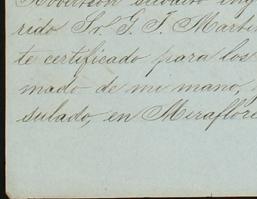 Robertson súbdito ing
rido Sr. G. F. Mart
te certificado para los
mado de mi mano,
sulado, en Miraflore